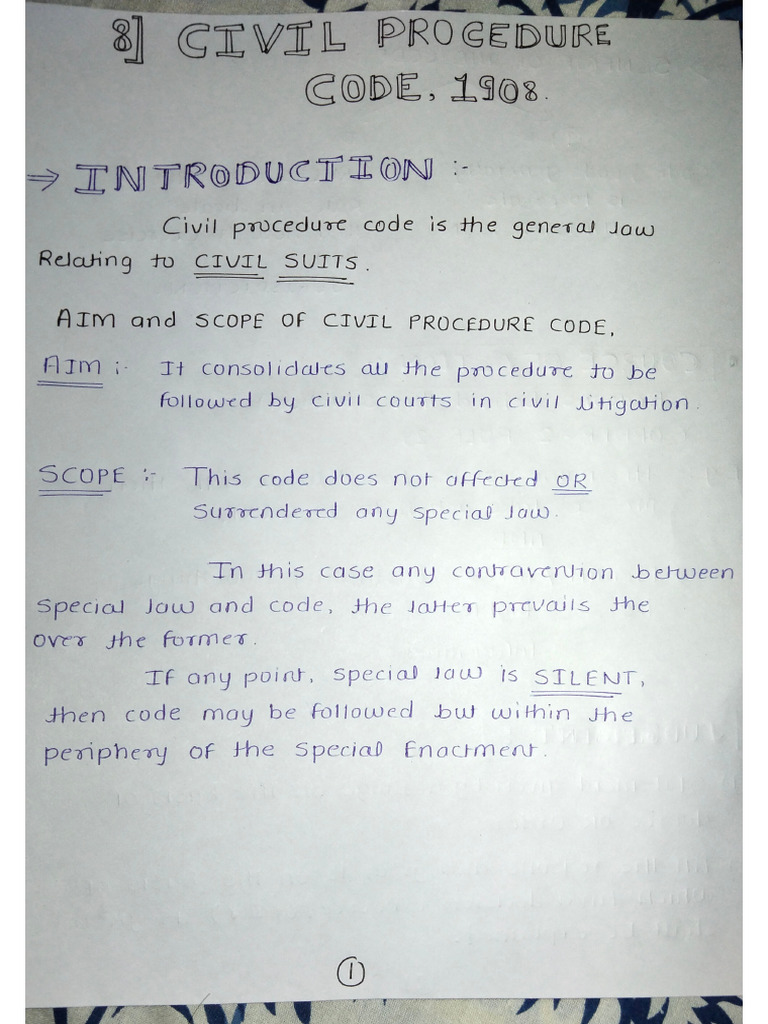 8] CIVIL PROCEDURE
CODE, 1908.
→ INTRODUCTION :-
Civil procedure code is the general law
Relating to CIVIL SUITS.
AIM and SCOPE OF CIVIL PROCEDURE CODE,
AIM :- It consolidates all the procedure to be
followed by civil courts in civil litigation.
SCOPE :- This code does not affected OR
Surrendered any special law.
In this case any contravention between
special law and code, the latter prevails the
over the former.
If any point, special law is SILENT,
then code may be followed but within the
periphery of the special Enactment.
1